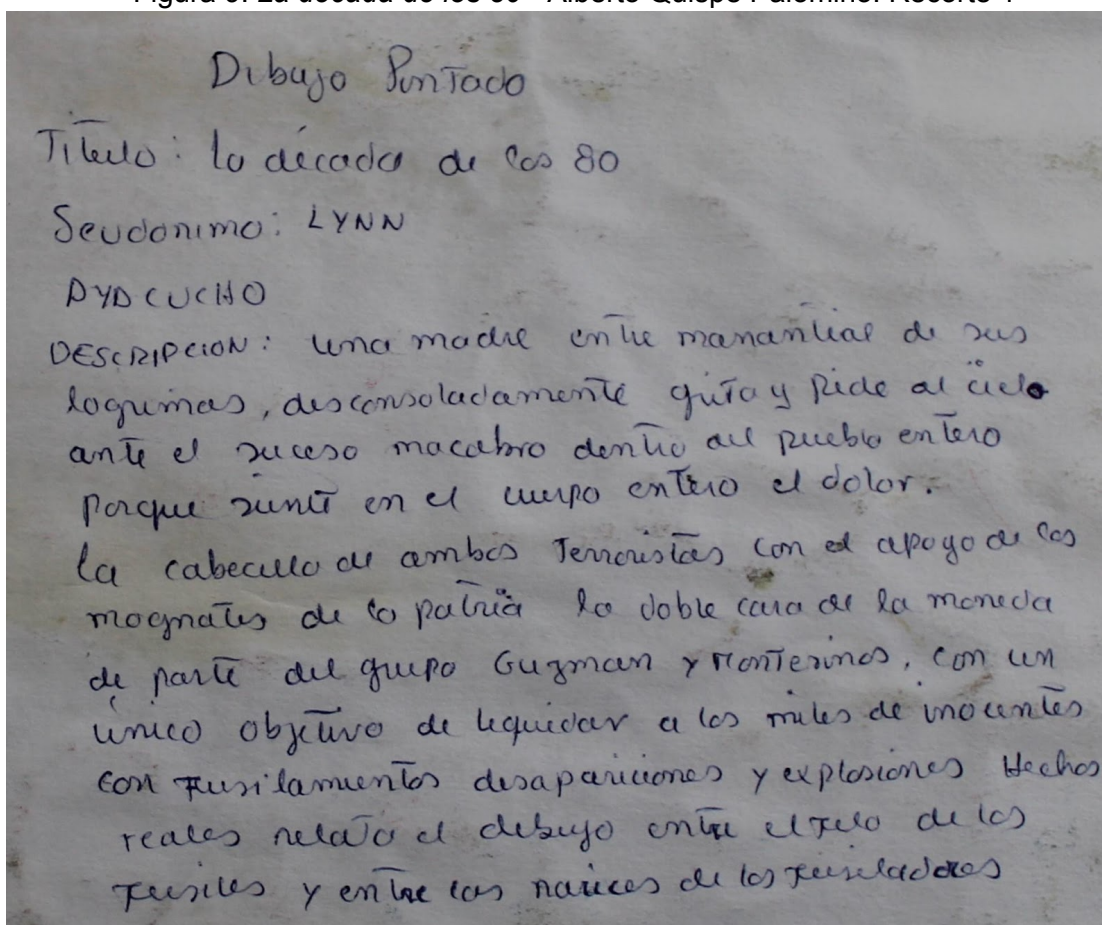 Dibujo Pintado
Título: la década de los 80
Seudonimo: LYNN
AYACUCHO
DESCRIPCION: una madre entre manantial de sus
lagrimas, desconsoladamente grita y pide al cielo
ante el suceso macabro dentro del pueblo entero
porque siente en el cuerpo entero el dolor.
la cabecilla de ambos Terroristas con el apoyo de los
magnates de la patria la doble cara de la moneda
de parte del grupo Guzman y Montesinos, con un
único objetivo de liquidar a los miles de inocentes
con fusilamientos desapariciones y explosiones Hechos
reales relata el dibujo entre el de los
fusiles y entre las narices de los fusiladores